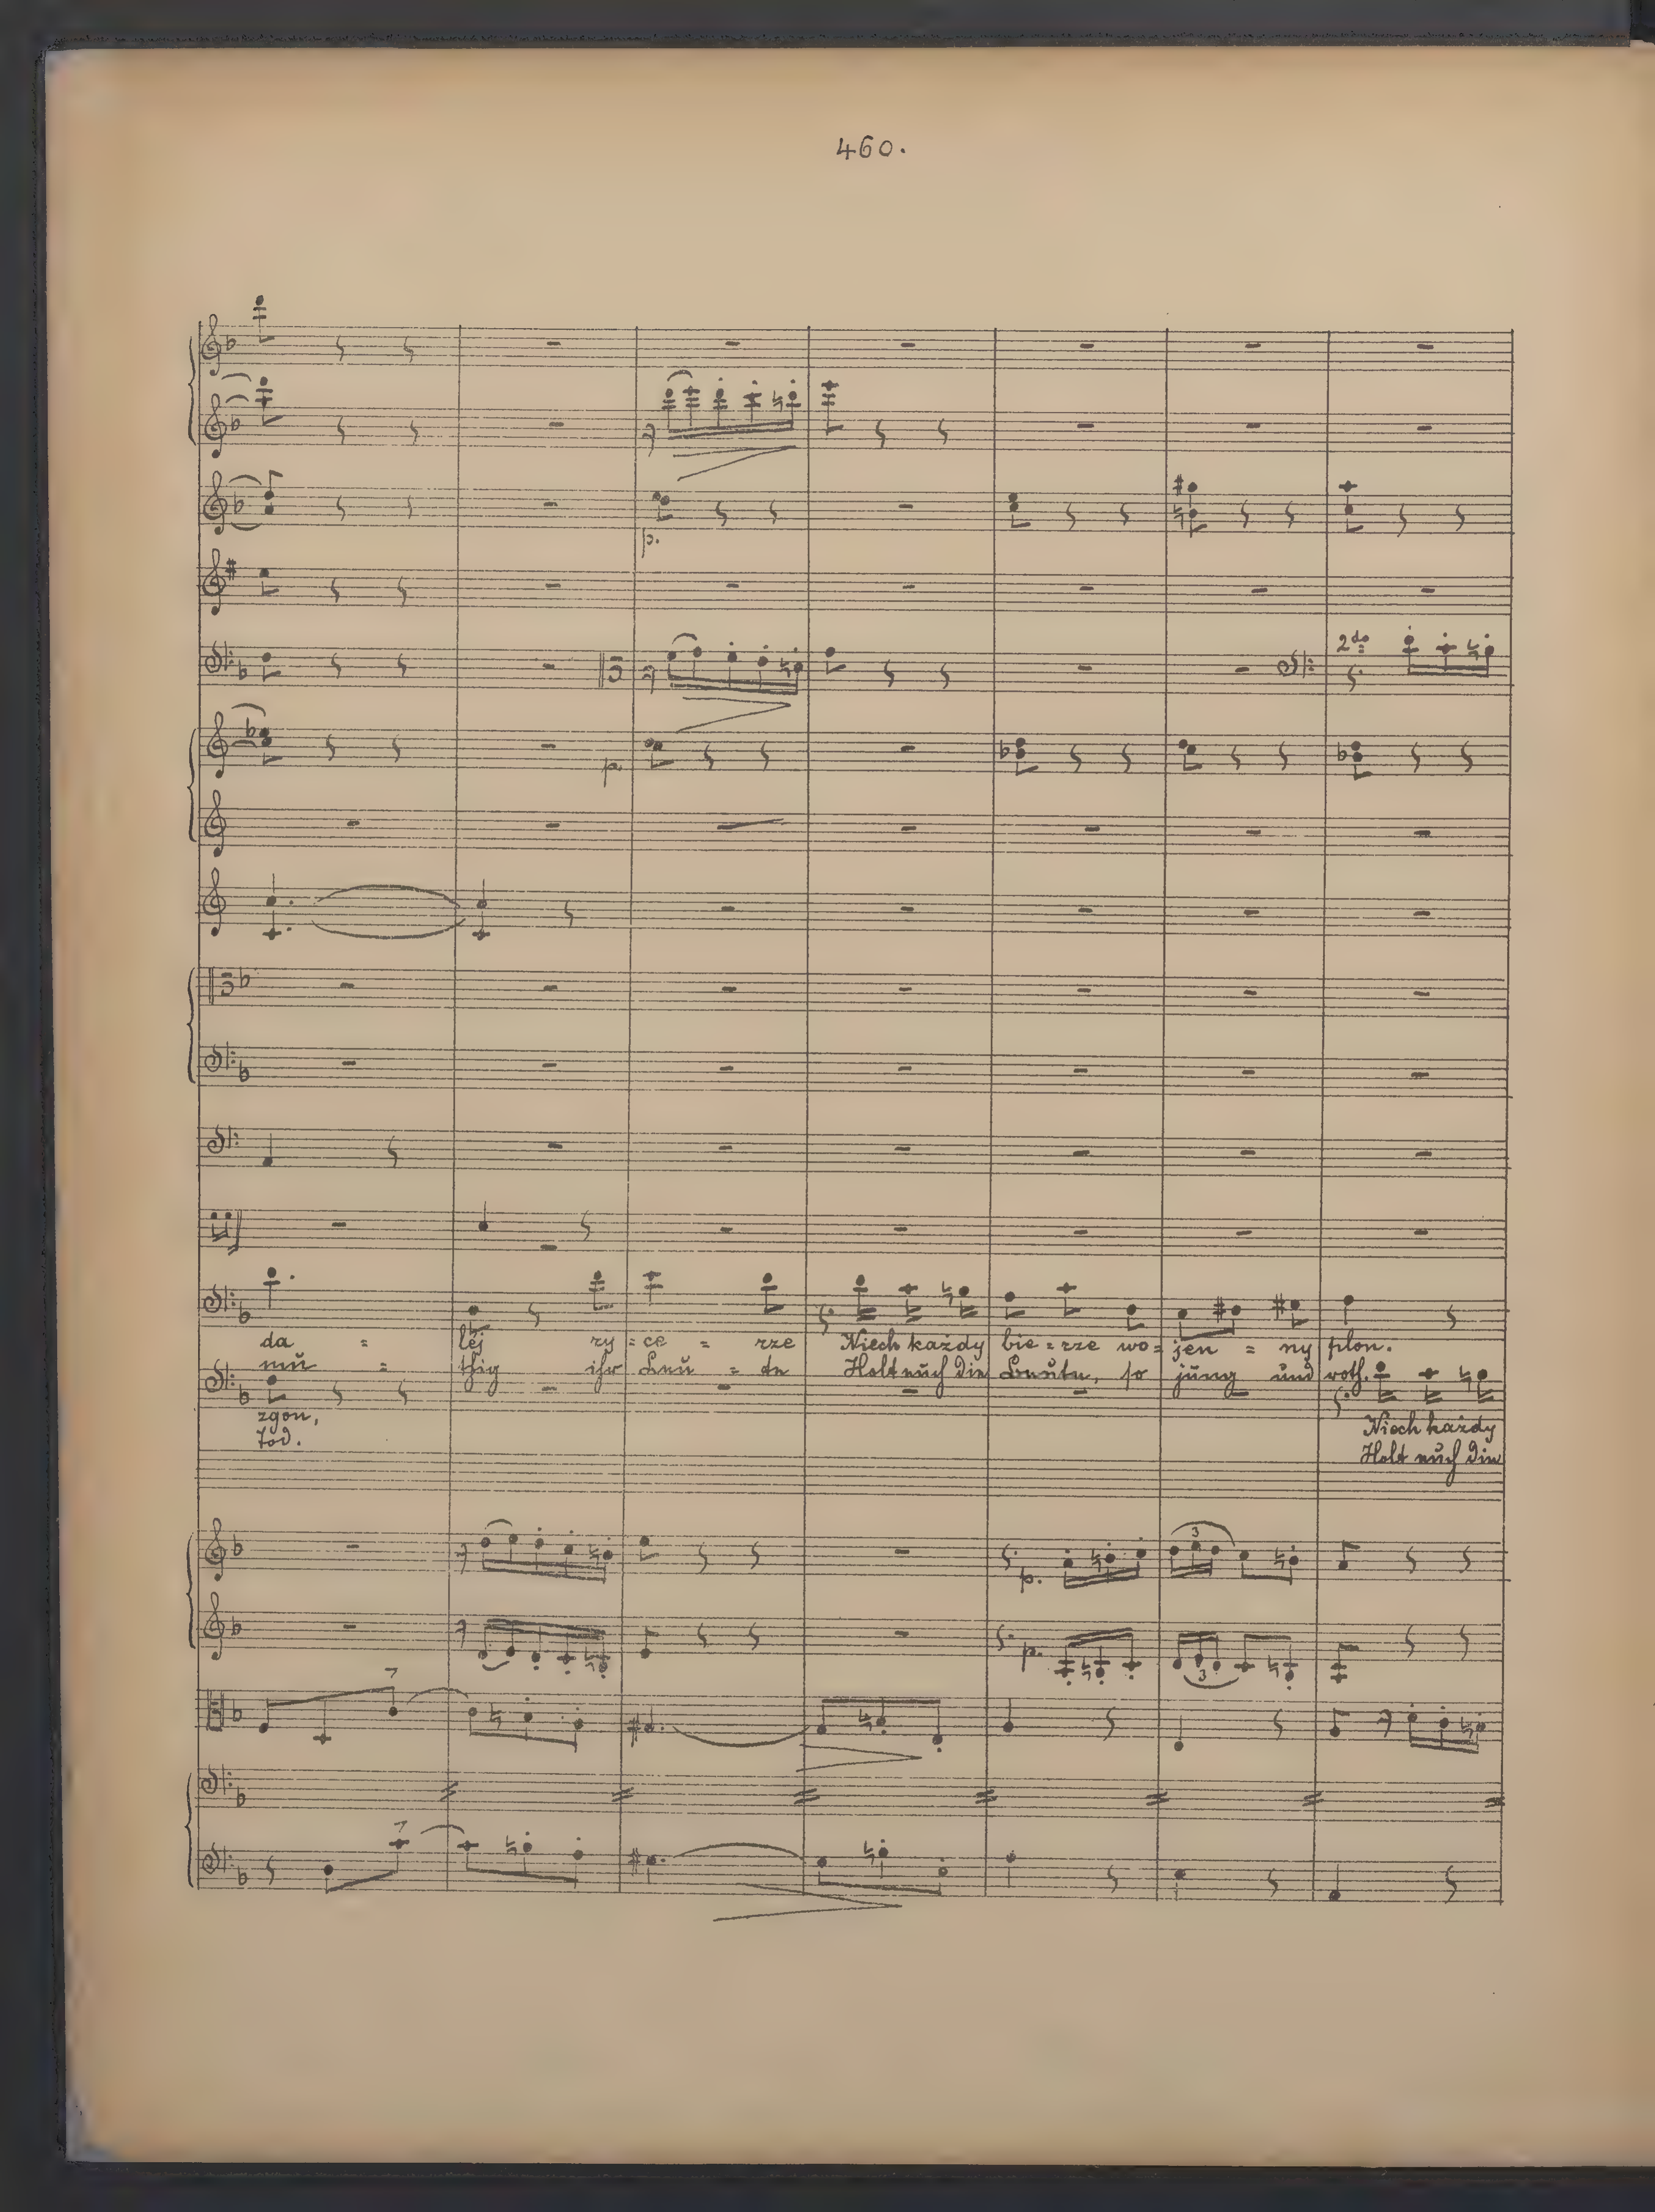 460.
p.
2do
p.
da = lej ry = ce = rze Niech każdy bie = rze wo = jen = ny plon.
mü = thig ihr Leu = te Holt euch die Beute, so jung und roth.
zgon,
Tod.
Niech każdy
Holt euch die
p. 3
p. 3